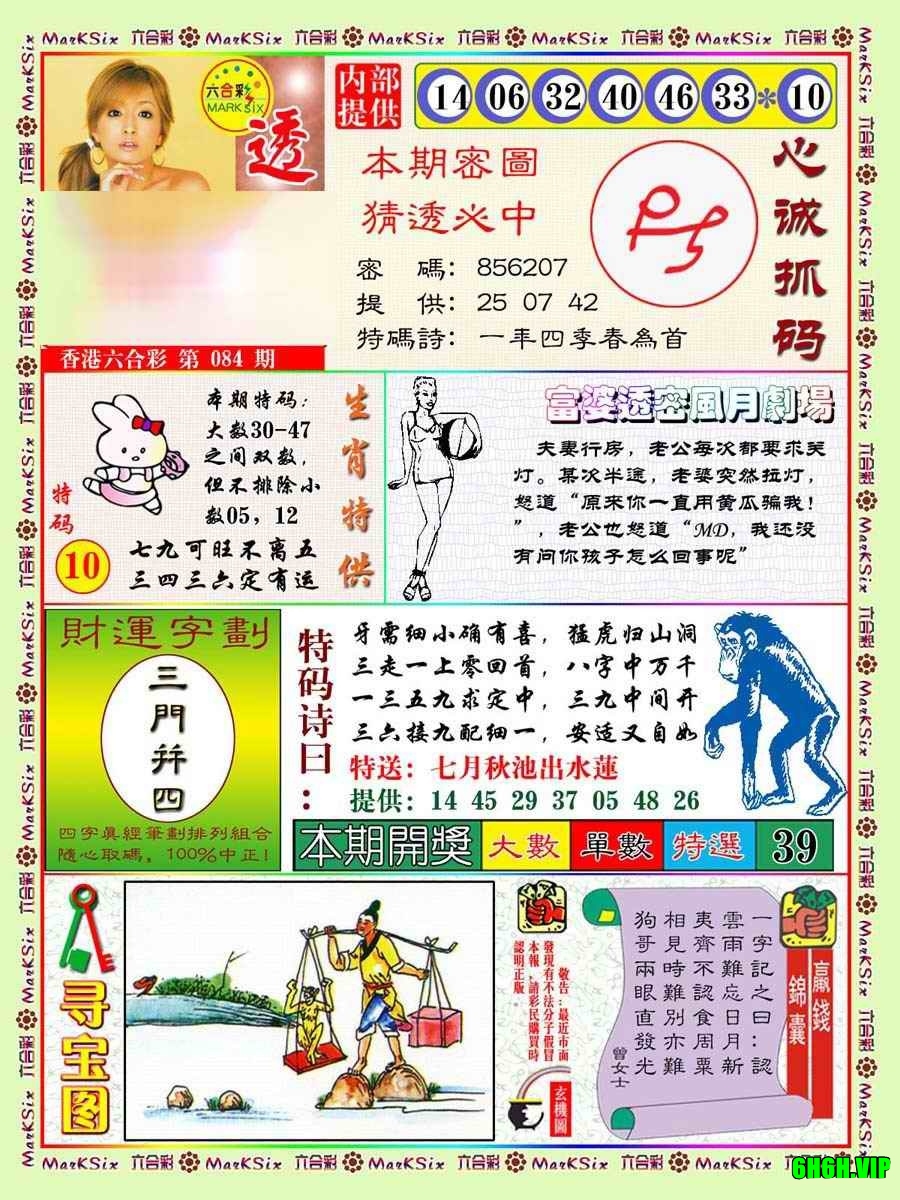 MarKSix 六合彩 MarKSix 六合彩 MarKSix 六合彩 MarKSix 六合彩 MarKSix 六合彩
六合彩
MARK SIX
透
内部
提供
14 06 32 40 46 33 * 10
本期密圖
猜透必中
密 碼：856207
提 供：25 07 42
特碼詩：一年四季春為首
心诚抓码
香港六合彩 第 084 期
本期特码：
大数30-47
之间双数，
但不排除小
数05，12
七九可旺不离五
三四三六定有运
特码
10
生肖特供
富婆透密風月劇場
夫妻行房，老公每次都要求关
灯。某次半途，老婆突然拉灯，
怒道“原来你一直用黄瓜骗我！
”，老公也怒道“MD，我还没
有问你孩子怎么回事呢”
財運字劃
三門并四
四字真經筆劃排列組合
隨心取碼，100%中正！
特码诗曰：
牙需细小确有喜，猛虎归山洞
三走一上零回首，八字中万千
一三五九求定中，三九中间开
三六接九配细一，安适又自如
特送：七月秋池出水蓮
提供：14 45 29 37 05 48 26
本期開獎 大數 單數 特選 39
寻宝图
敬告：最近市面
發現有不法分子假冒
本報，請彩民購買時
認明正版。
玄機圖
贏錢
錦囊
一字記之曰：認
雲雨難忘日月新
夷齊不認食周粟
相見時難別亦難
狗哥兩眼直發光
曾女士
MarKSix 六合彩 MarKSix 六合彩 MarKSix 六合彩 MarKSix 六合彩 MarKSix
6H6H.VIP